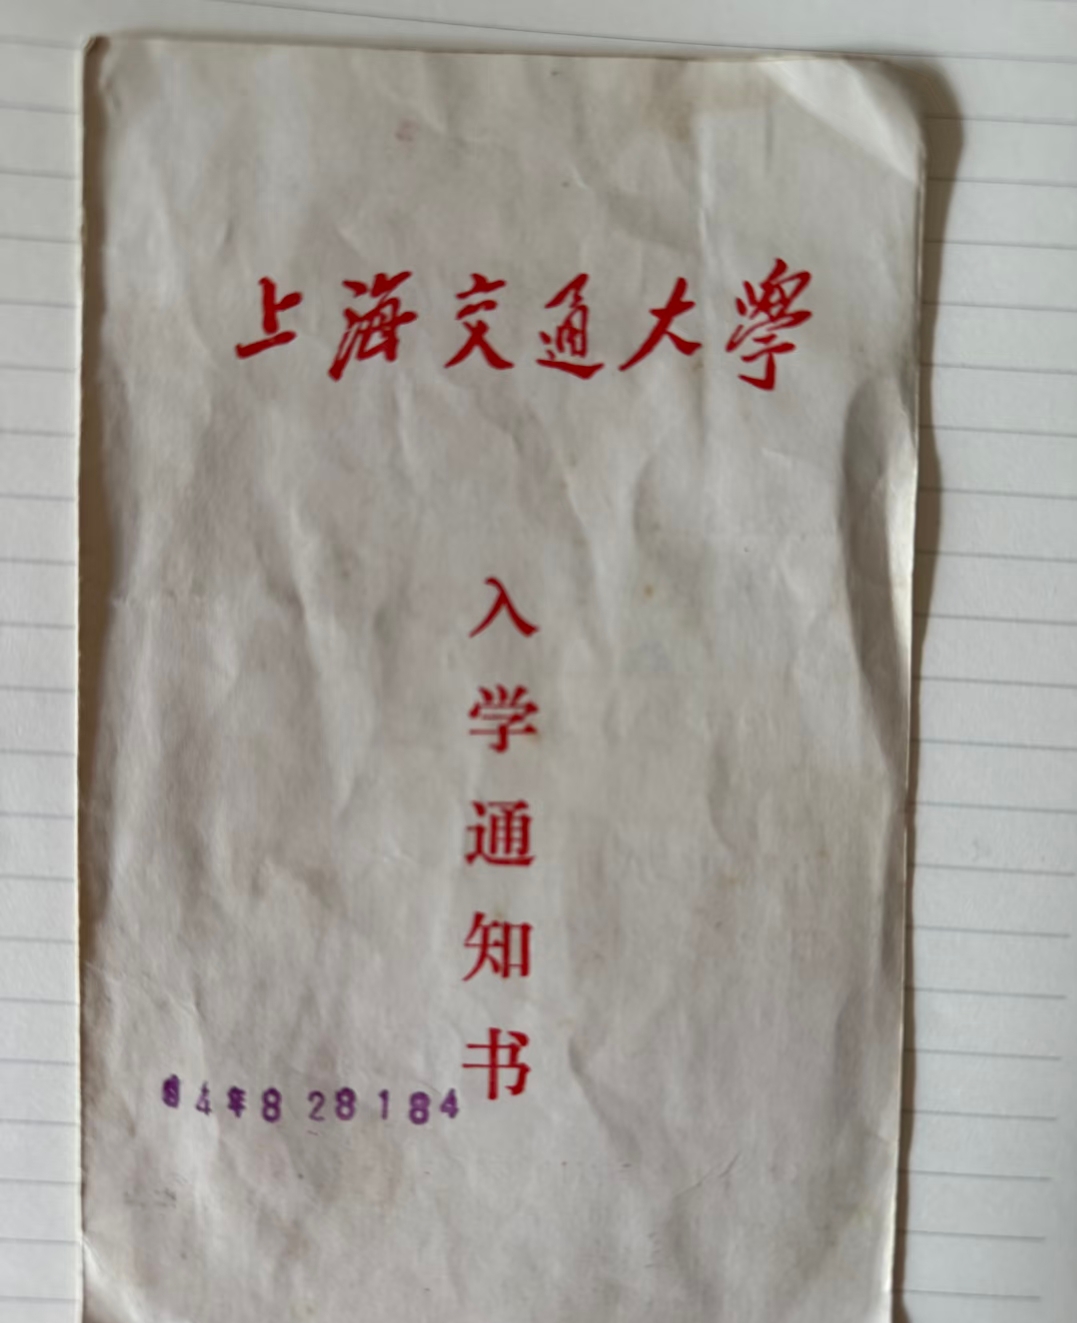 上海交通大學
入学通知书
4年8 28184